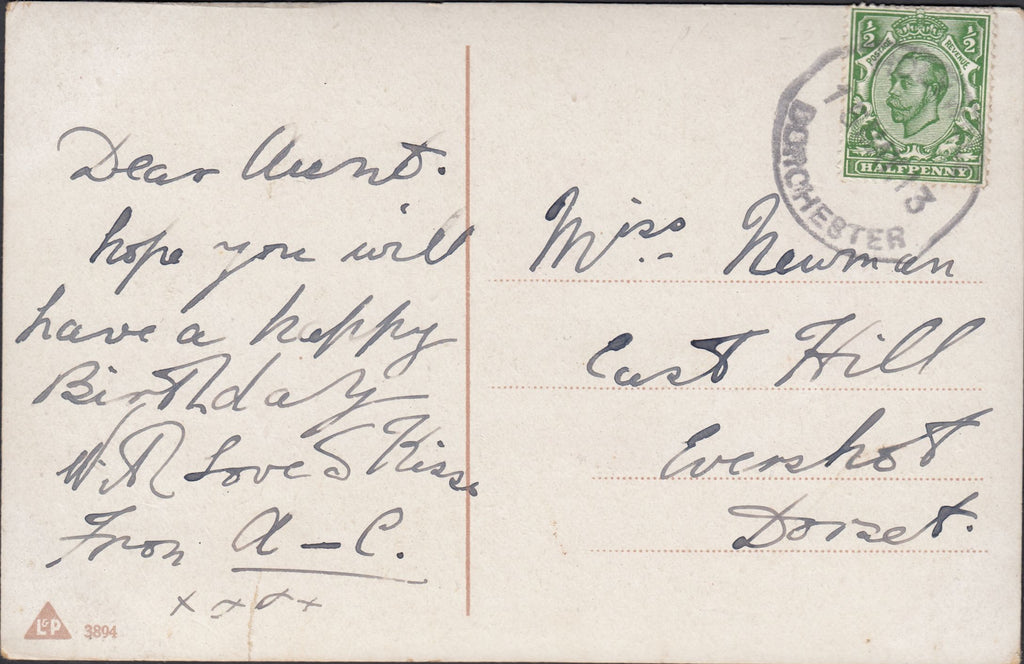 Dear Aunt.
hope you will
have a happy
Birthday
With Love & Kiss.
From A - C.
x x x x
L&P 3894
½ ½
POSTAGE REVENUE
HALFPENNY
DORCHESTER
13
Miss. Newman
East Hill
Evershot
Dorset.